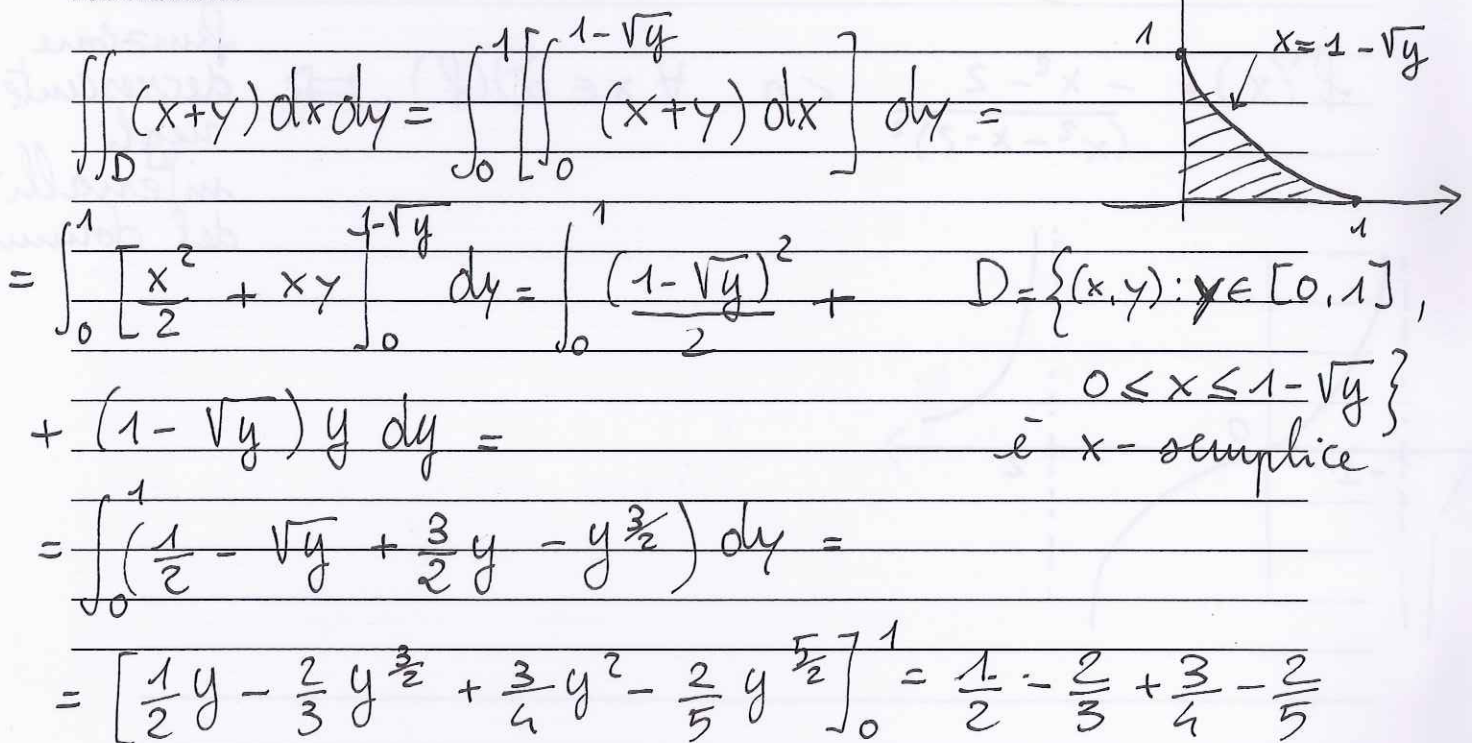 ∬_D (x+y) dx dy = ∫_0^1 [∫_0^{1-√y} (x+y) dx] dy =
1
x = 1 - √y
1
= ∫_0^1 [x²/2 + xy]_0^{1-√y} dy = ∫_0^1 (1-√y)²/2 +
D = {(x,y): y ∈ [0,1],
0 ≤ x ≤ 1-√y}
è x-semplice
+ (1-√y) y dy =
= ∫_0^1 (1/2 - √y + 3/2 y - y^{3/2}) dy =
= [1/2 y - 2/3 y^{3/2} + 3/4 y² - 2/5 y^{5/2}]_0^1 = 1/2 - 2/3 + 3/4 - 2/5